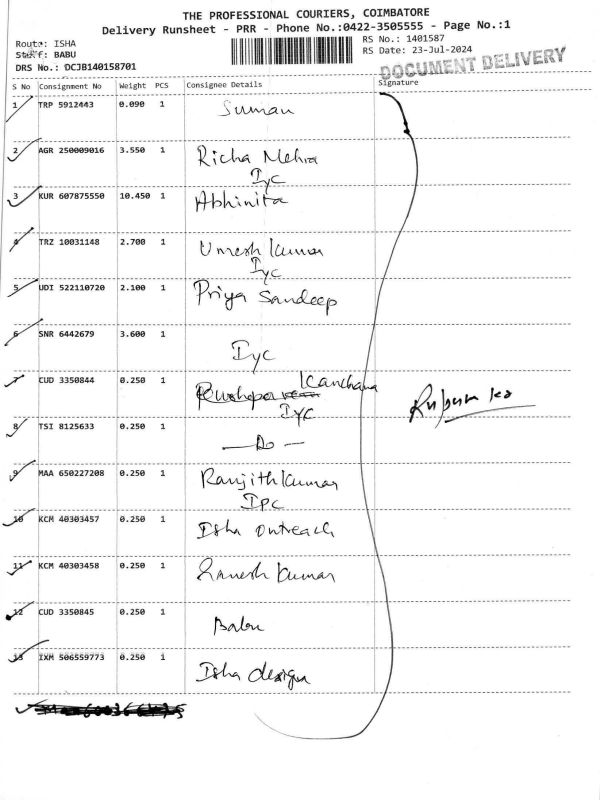 THE PROFESSIONAL COURIERS, COIMBATORE
Delivery Runsheet - PRR - Phone No.:0422-3505555 - Page No.:1
Route: ISHA
Staff: BABU
DRS No.: DCJB140158701
RS No.: 1401587
RS Date: 23-Jul-2024
DOCUMENT DELIVERY
S No Consignment No Weight PCS Consignee Details Signature
1 TRP 5912443 0.090 1 Suman
2 AGR 250009016 3.550 1 Richa Mehra
Iyc
3 KUR 607875550 10.450 1 Abhinita
4 TRZ 10031148 2.700 1 Umesh Kumar
Iyc
5 UDI 522110720 2.100 1 Priya Sandeep
6 SNR 6442679 3.600 1 Iyc
7 CUD 3350844 0.250 1 Kanchana
Iyc
8 TSI 8125633 0.250 1 — Do —
9 MAA 650227208 0.250 1 Ranjith Kumar
IPC
10 KCM 40303457 0.250 1 Isha Outreach
11 KCM 40303458 0.250 1 Kumar
12 CUD 3350845 0.250 1 Babu
13 IXM 506559773 0.250 1 Isha design